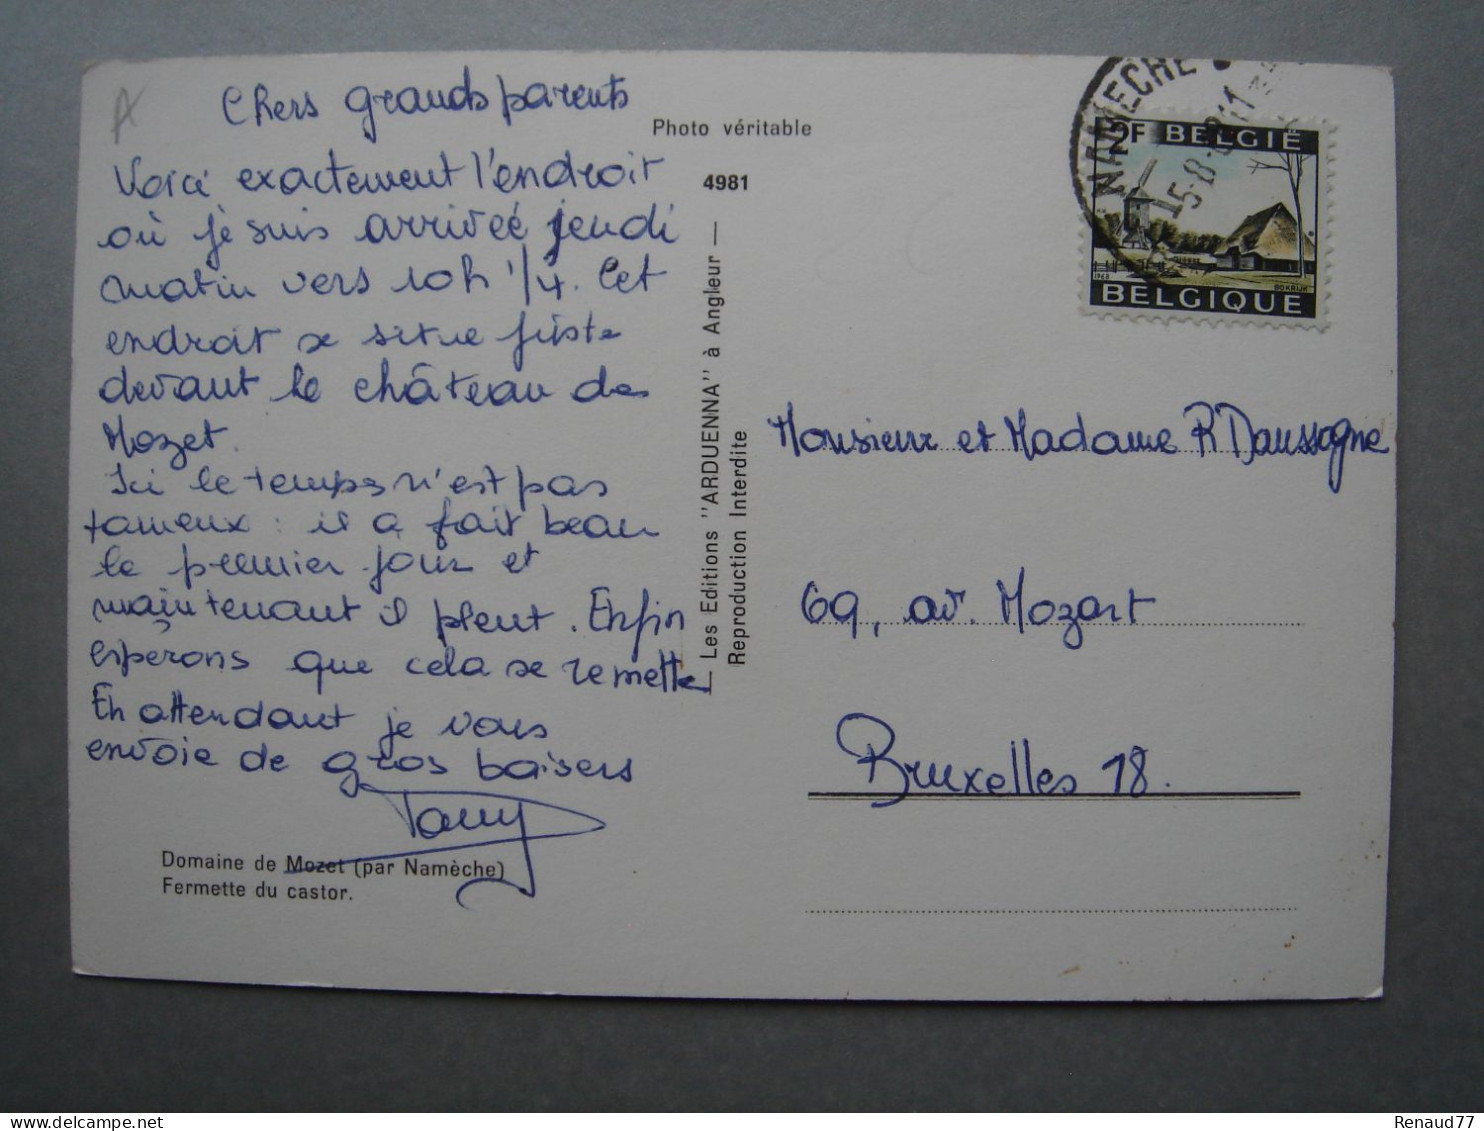 Chers grands parents
Voici exactement l'endroit
où je suis arrivée jeudi
matin vers 10h 1/4. Cet
endroit se situe juste
devant le château de
Mozet.
Ici le temps n'est pas
fameux : il a fait beau
le premier jour et
maintenant il pleut. Enfin
esperons que cela se remette
En attendant je vous
envoie de gros baisers
Domaine de Mozet (par Namèche)
Fermette du castor.
Photo véritable
4981
Les Editions "ARDUENNA" à Angleur
Reproduction Interdite
NAMECHE
15-8-
2F BELGIË
1968 BOKRIJK
BELGIQUE
Monsieur et Madame R Daussogne
69, av. Mozart
Bruxelles 18.
Renaud77